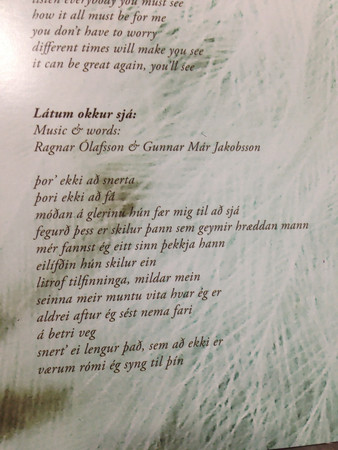 listen everybody you must see
how it all must be for me
you don't have to worry
different times will make you see
it can be great again, you'll see
Látum okkur sjá:
Music & words:
Ragnar Ólafsson & Gunnar Már Jakobsson
þor' ekki að snerta
þori ekki að fá
móðan á glerinu hún fær mig til að sjá
fegurð þess er skilur þann sem geymir hræddan mann
mér fannst ég eitt sinn þekkja hann
eilífðin hún skilur ein
litrof tilfinninga, mildar mein
seinna meir muntu vita hvar ég er
aldrei aftur ég sést nema fari
á betri veg
snert' ei lengur það, sem að ekki er
værum rómi ég syng til þín